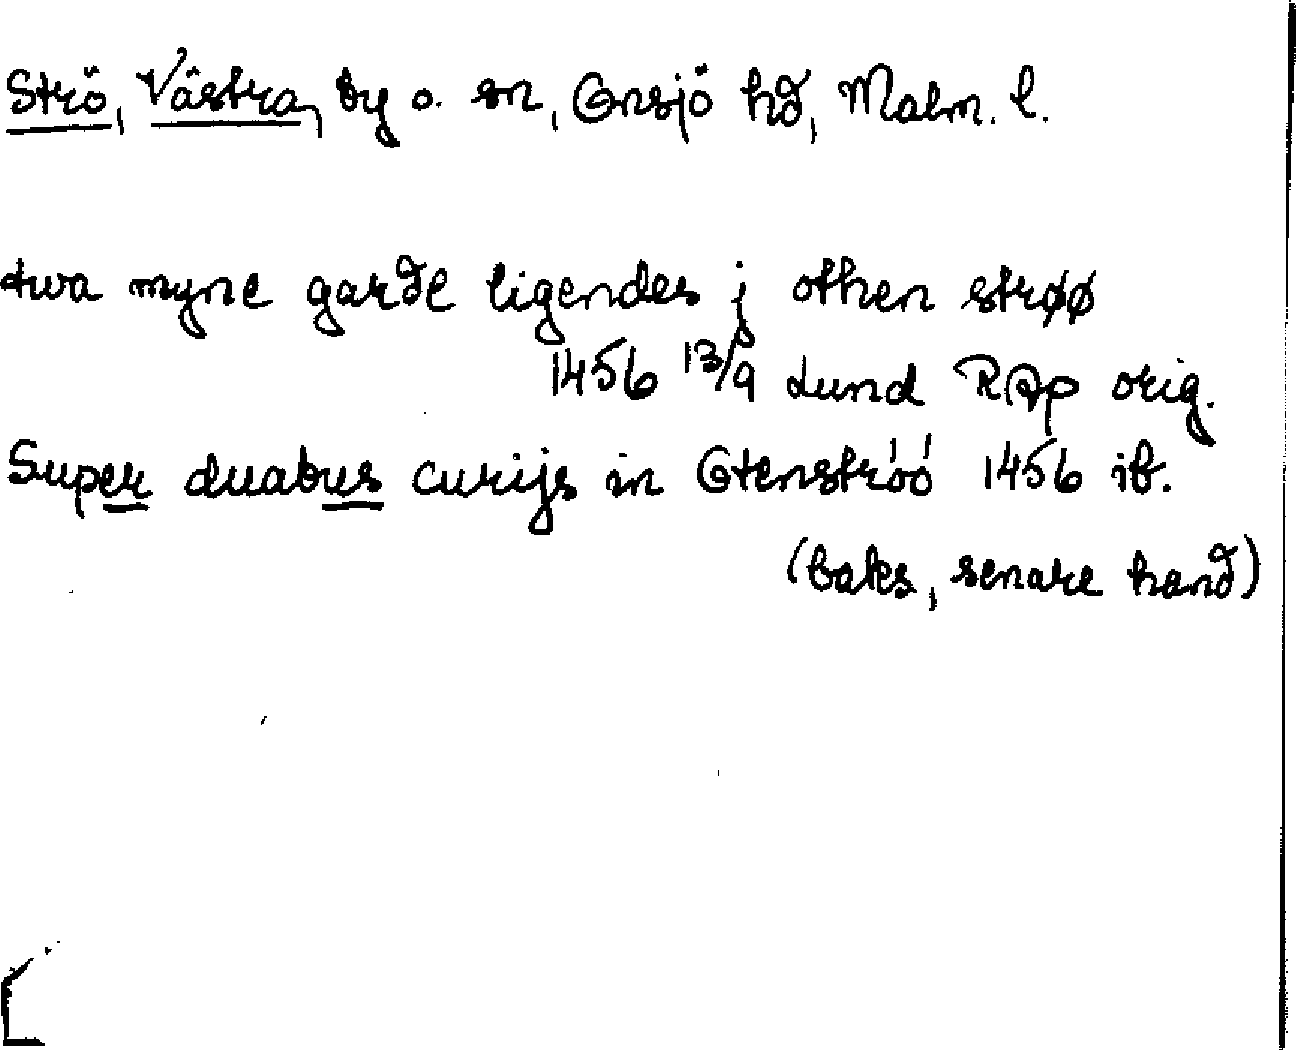 Strö, Västra, by o. sn, Onsjö hd, Malm. l.
twa myne garde ligendes j othen strøø
1456 13/9 Lund RAp orig.
Super duabus curijs in Otenstróó 1456 ib.
(baks, senare hand)